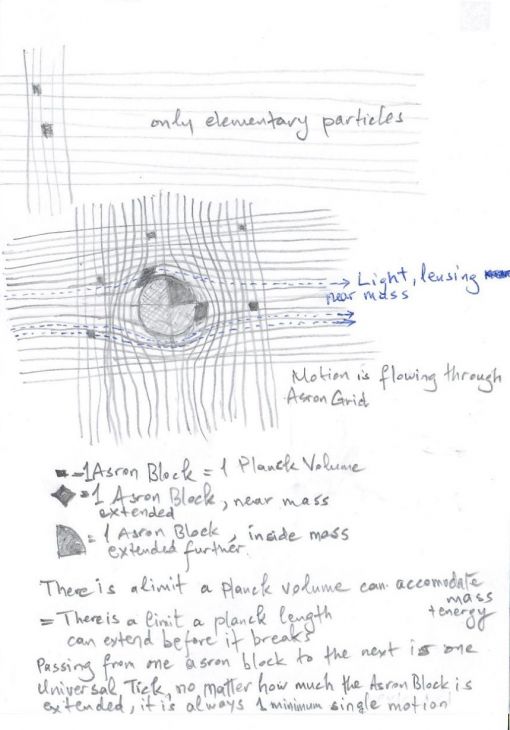 only elementary particles
Light, lensing
near mass
Motion is flowing through
Asron Grid
= 1 Asron Block = 1 Planck Volume
= 1 Asron Block, near mass
extended
= 1 Asron Block, inside mass
extended further.
There is a limit a planck volume can accomodate
mass
+ energy
= There is a limit a planck length
can extend before it breaks
Passing from one asron block to the next is one
Universal Tick, no matter how much the Asron Block is
extended, it is always 1 minimum single motion